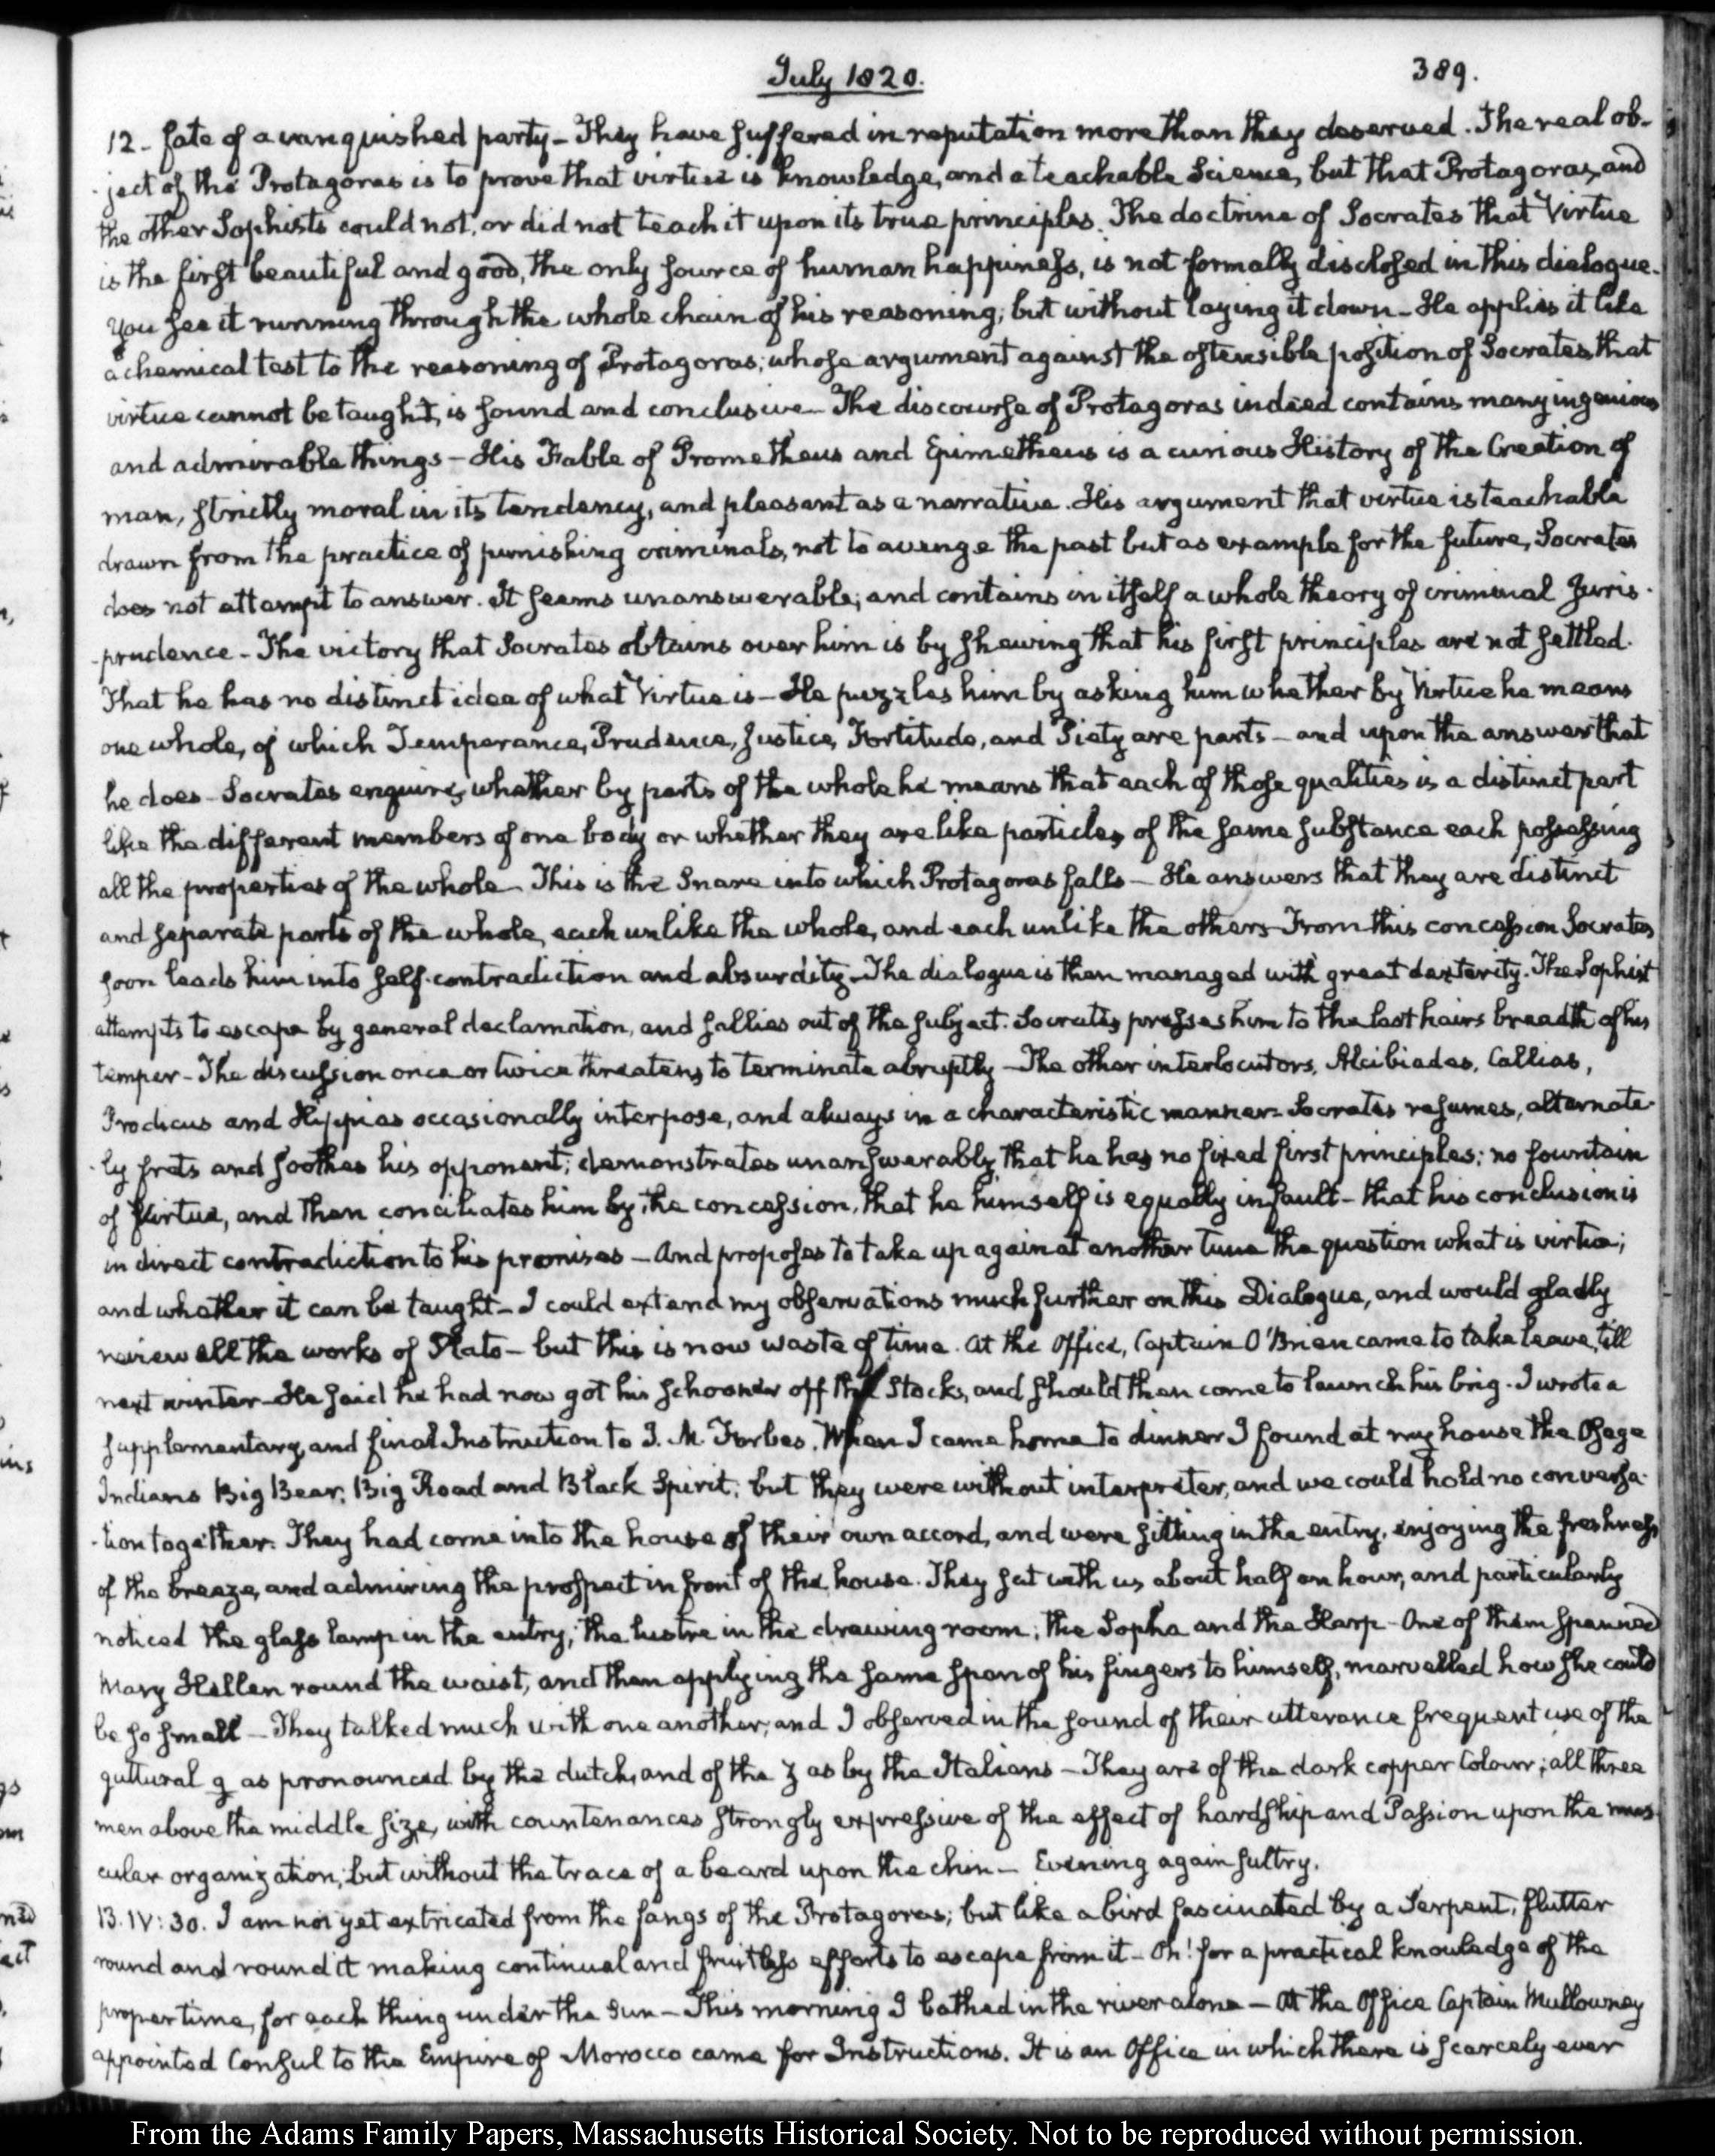 July 1820.
389.
12 - fate of a vanquished party - They have suffered in reputation more than they deserved. The real ob-
-ject of the Protagoras is to prove that virtue is knowledge, and a teachable Science, but that Protagoras, and
the other Sophists could not, or did not teach it upon its true principles. The doctrine of Socrates that Virtue
is the first beautiful and good, the only source of human happiness, is not formally disclosed in this dialogue.
You see it running through the whole chain of his reasoning; but without laying it down - He applies it like
a chemical test to the reasoning of Protagoras; whose argument against the ostensible position of Socrates, that
virtue cannot be taught, is sound and conclusive - The discourse of Protagoras indeed contains many ingenious
and admirable things - His Fable of Prometheus and Epimetheus is a curious History of the Creation of
man, strictly moral in its tendency, and pleasant as a narrative. His argument that virtue is teachable
drawn from the practice of punishing criminals, not to avenge the past but as example for the future, Socrates
does not attempt to answer. It seems unanswerable; and contains in itself a whole theory of criminal Juris-
-prudence - The victory that Socrates obtains over him is by shewing that his first principles are not settled.
That he has no distinct idea of what Virtue is - He puzzles him by asking him whether by Virtue he means
one whole, of which Temperance, Prudence, Justice, Fortitude, and Piety are parts - and upon the answer that
he does - Socrates enquires, whether by parts of the whole he means that each of those qualities is a distinct part
like the different members of one body or whether they are like particles of the same substance each possessing
all the properties of the whole - This is the Snare into which Protagoras falls - He answers that they are distinct
and separate parts of the whole, each unlike the whole, and each unlike the others - From this concession Socrates
soon leads him into self-contradiction and absurdity - The dialogue is then managed with great dexterity. The Sophist
attempts to escape by general declamation, and sallies out of the subject. Socrates presses him to the last hairs breadth of his
temper - The discussion once or twice threatens to terminate abruptly - The other interlocutors, Alcibiades, Callias,
Prodicus and Hippias occasionally interpose, and always in a characteristic manner - Socrates resumes, alternate-
-ly frets and soothes his opponent; demonstrates unanswerably that he has no fixed first principles; no fountain
of Virtue, and then conciliates him by the concession, that he himself is equally in fault - that his conclusion is
in direct contradiction to his premises - And proposes to take up again at another time the question what is virtue;
and whether it can be taught - I could extend my observations much further on this Dialogue, and would gladly
review all the works of Plato - but this is now waste of time. At the Office, Captain O'Brien came to take leave, till
next winter - He said he had now got his schooner off the Stocks, and should then come to launch his brig. I wrote a
supplementary, and final Instruction to J. M. Forbes. When I came home to dinner I found at my house the Osage
Indians Big Bear, Big Road and Black Spirit; but they were without interpreter, and we could hold no conversa-
-tion together. They had come into the house of their own accord, and were sitting in the entry, enjoying the freshness
of the breeze, and admiring the prospect in front of the house. They sat with us about half an hour, and particularly
noticed the glass lamp in the entry; the lustre in the drawing room; the Sopha and the Harp - One of them spanned
Mary Hellen round the waist, and then applying the same span of his fingers to himself, marvelled how she could
be so small - They talked much with one another; and I observed in the sound of their utterance frequent use of the
guttural g as pronounced by the dutch, and of the z as by the Italians - They are of the dark copper Colour; all three
men above the middle size, with countenances strongly expressive of the effect of hardship and Passion upon the mus-
cular organization; but without the trace of a beard upon the chin - Evening again sultry.
13. IV: 30. I am not yet extricated from the fangs of the Protagoras; but like a bird fascinated by a Serpent, flutter
round and round it making continual and fruitless efforts to escape from it - Oh! for a practical knowledge of the
proper time, for each thing under the Sun - This morning I bathed in the river alone - At the Office Captain Mullowney
appointed Consul to the Empire of Morocco came for Instructions. It is an Office in which there is scarcely ever
From the Adams Family Papers, Massachusetts Historical Society. Not to be reproduced without permission.